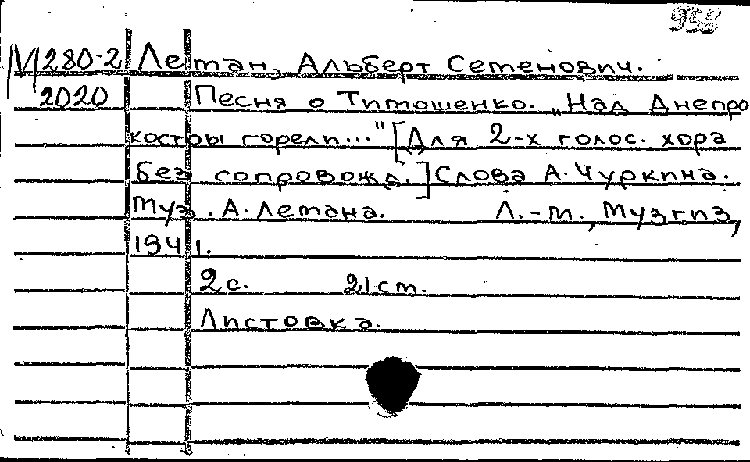 958
М 280-2 Леман, Альберт Семенович.
2020 Песня о Тимошенко. „Над Днепро
костры горели..." [Для 2-х голос. хора
без сопровожд.] Слова А. Чуркина.
Муз. А. Лемана. Л.-М., Музгиз,
1941.
2 с. 21 см.
Листовка.